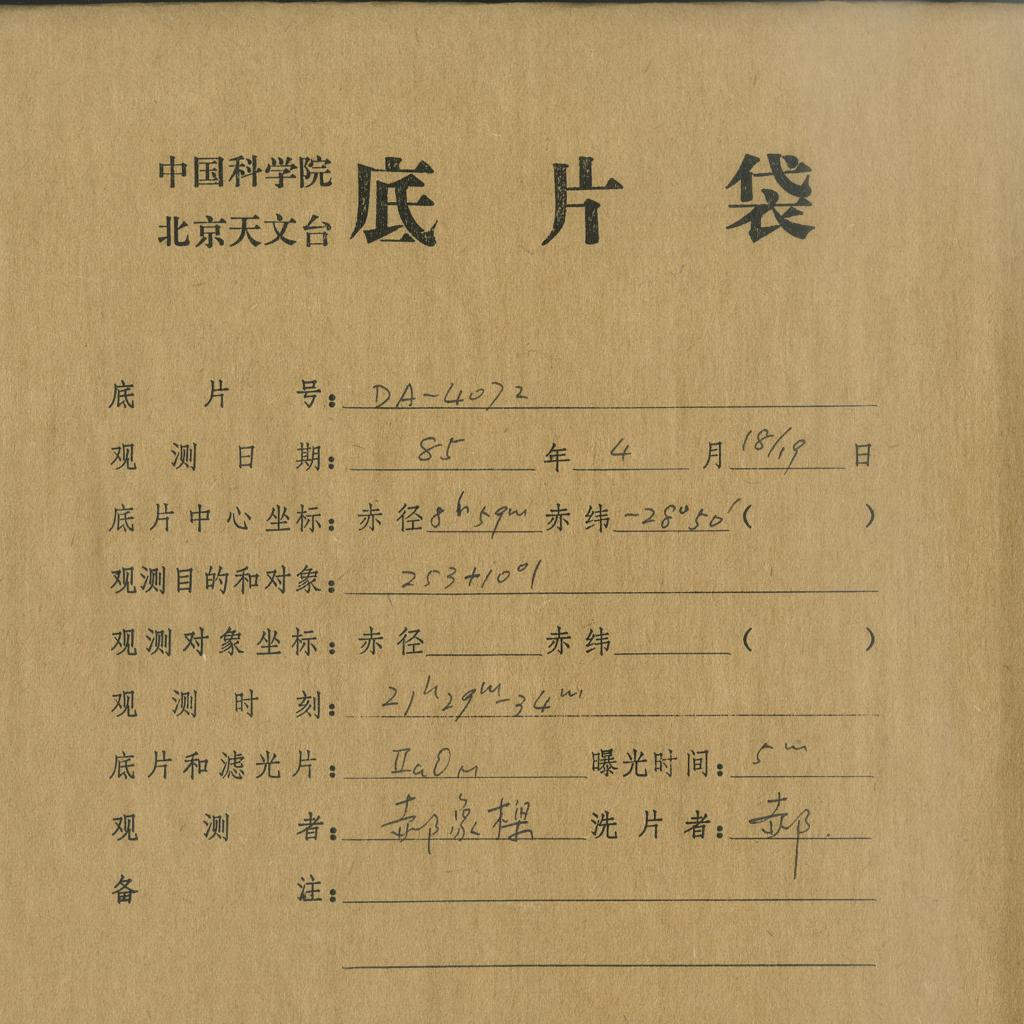 中国科学院
北京天文台
底片袋
底片号：DA-4072
观测日期：85年4月18/19日
底片中心坐标：赤径8ʰ59ᵐ赤纬-28°50′( )
观测目的和对象：253+10°1
观测对象坐标：赤径 赤纬 ( )
观测时刻：21ʰ29ᵐ-34ᵐ
底片和滤光片：ⅡaO 曝光时间：5ᵐ
观测者：郝象樑 洗片者：郝.
备注：